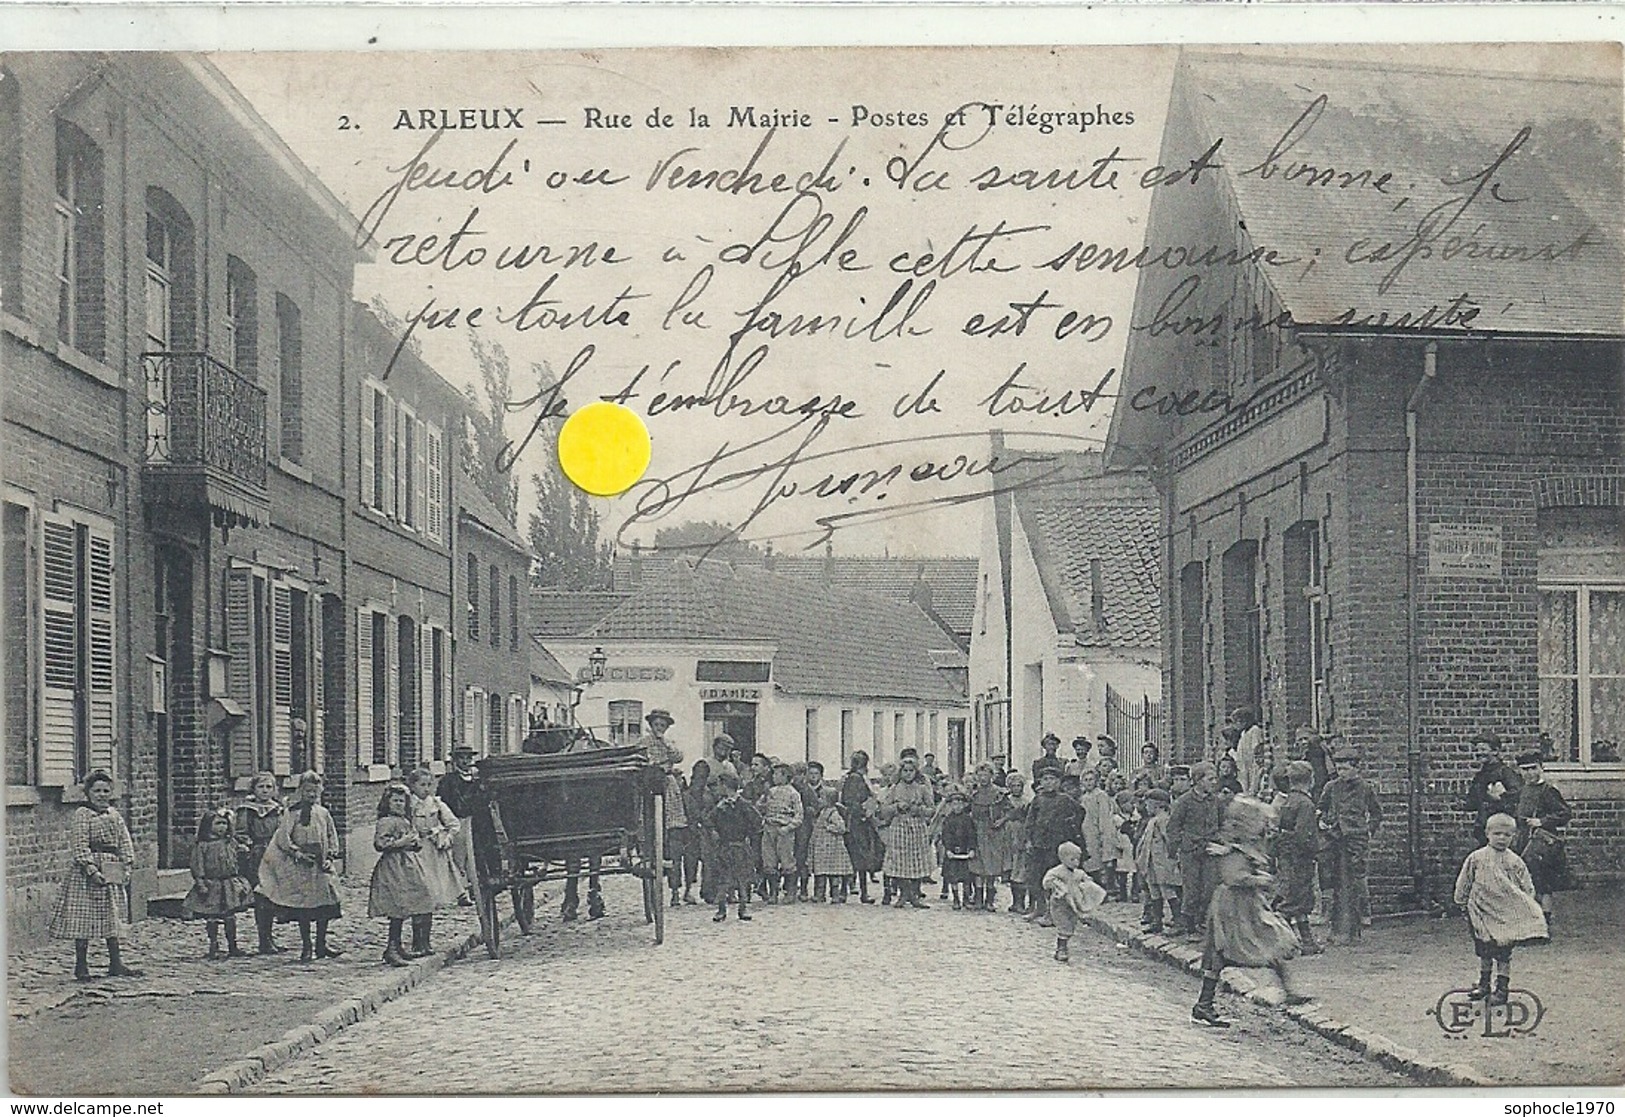 2. ARLEUX — Rue de la Mairie - Postes et Télégraphes
Jeudi ou Vendredi. La santé est bonne; Je
retourne à Lille cette semaine; espérant
que toute la famille est en bonne santé
Je t'embrasse de tout coeur
CYCLES
DAMEZ
E.L.D
www.delcampe.net
sophocle1970